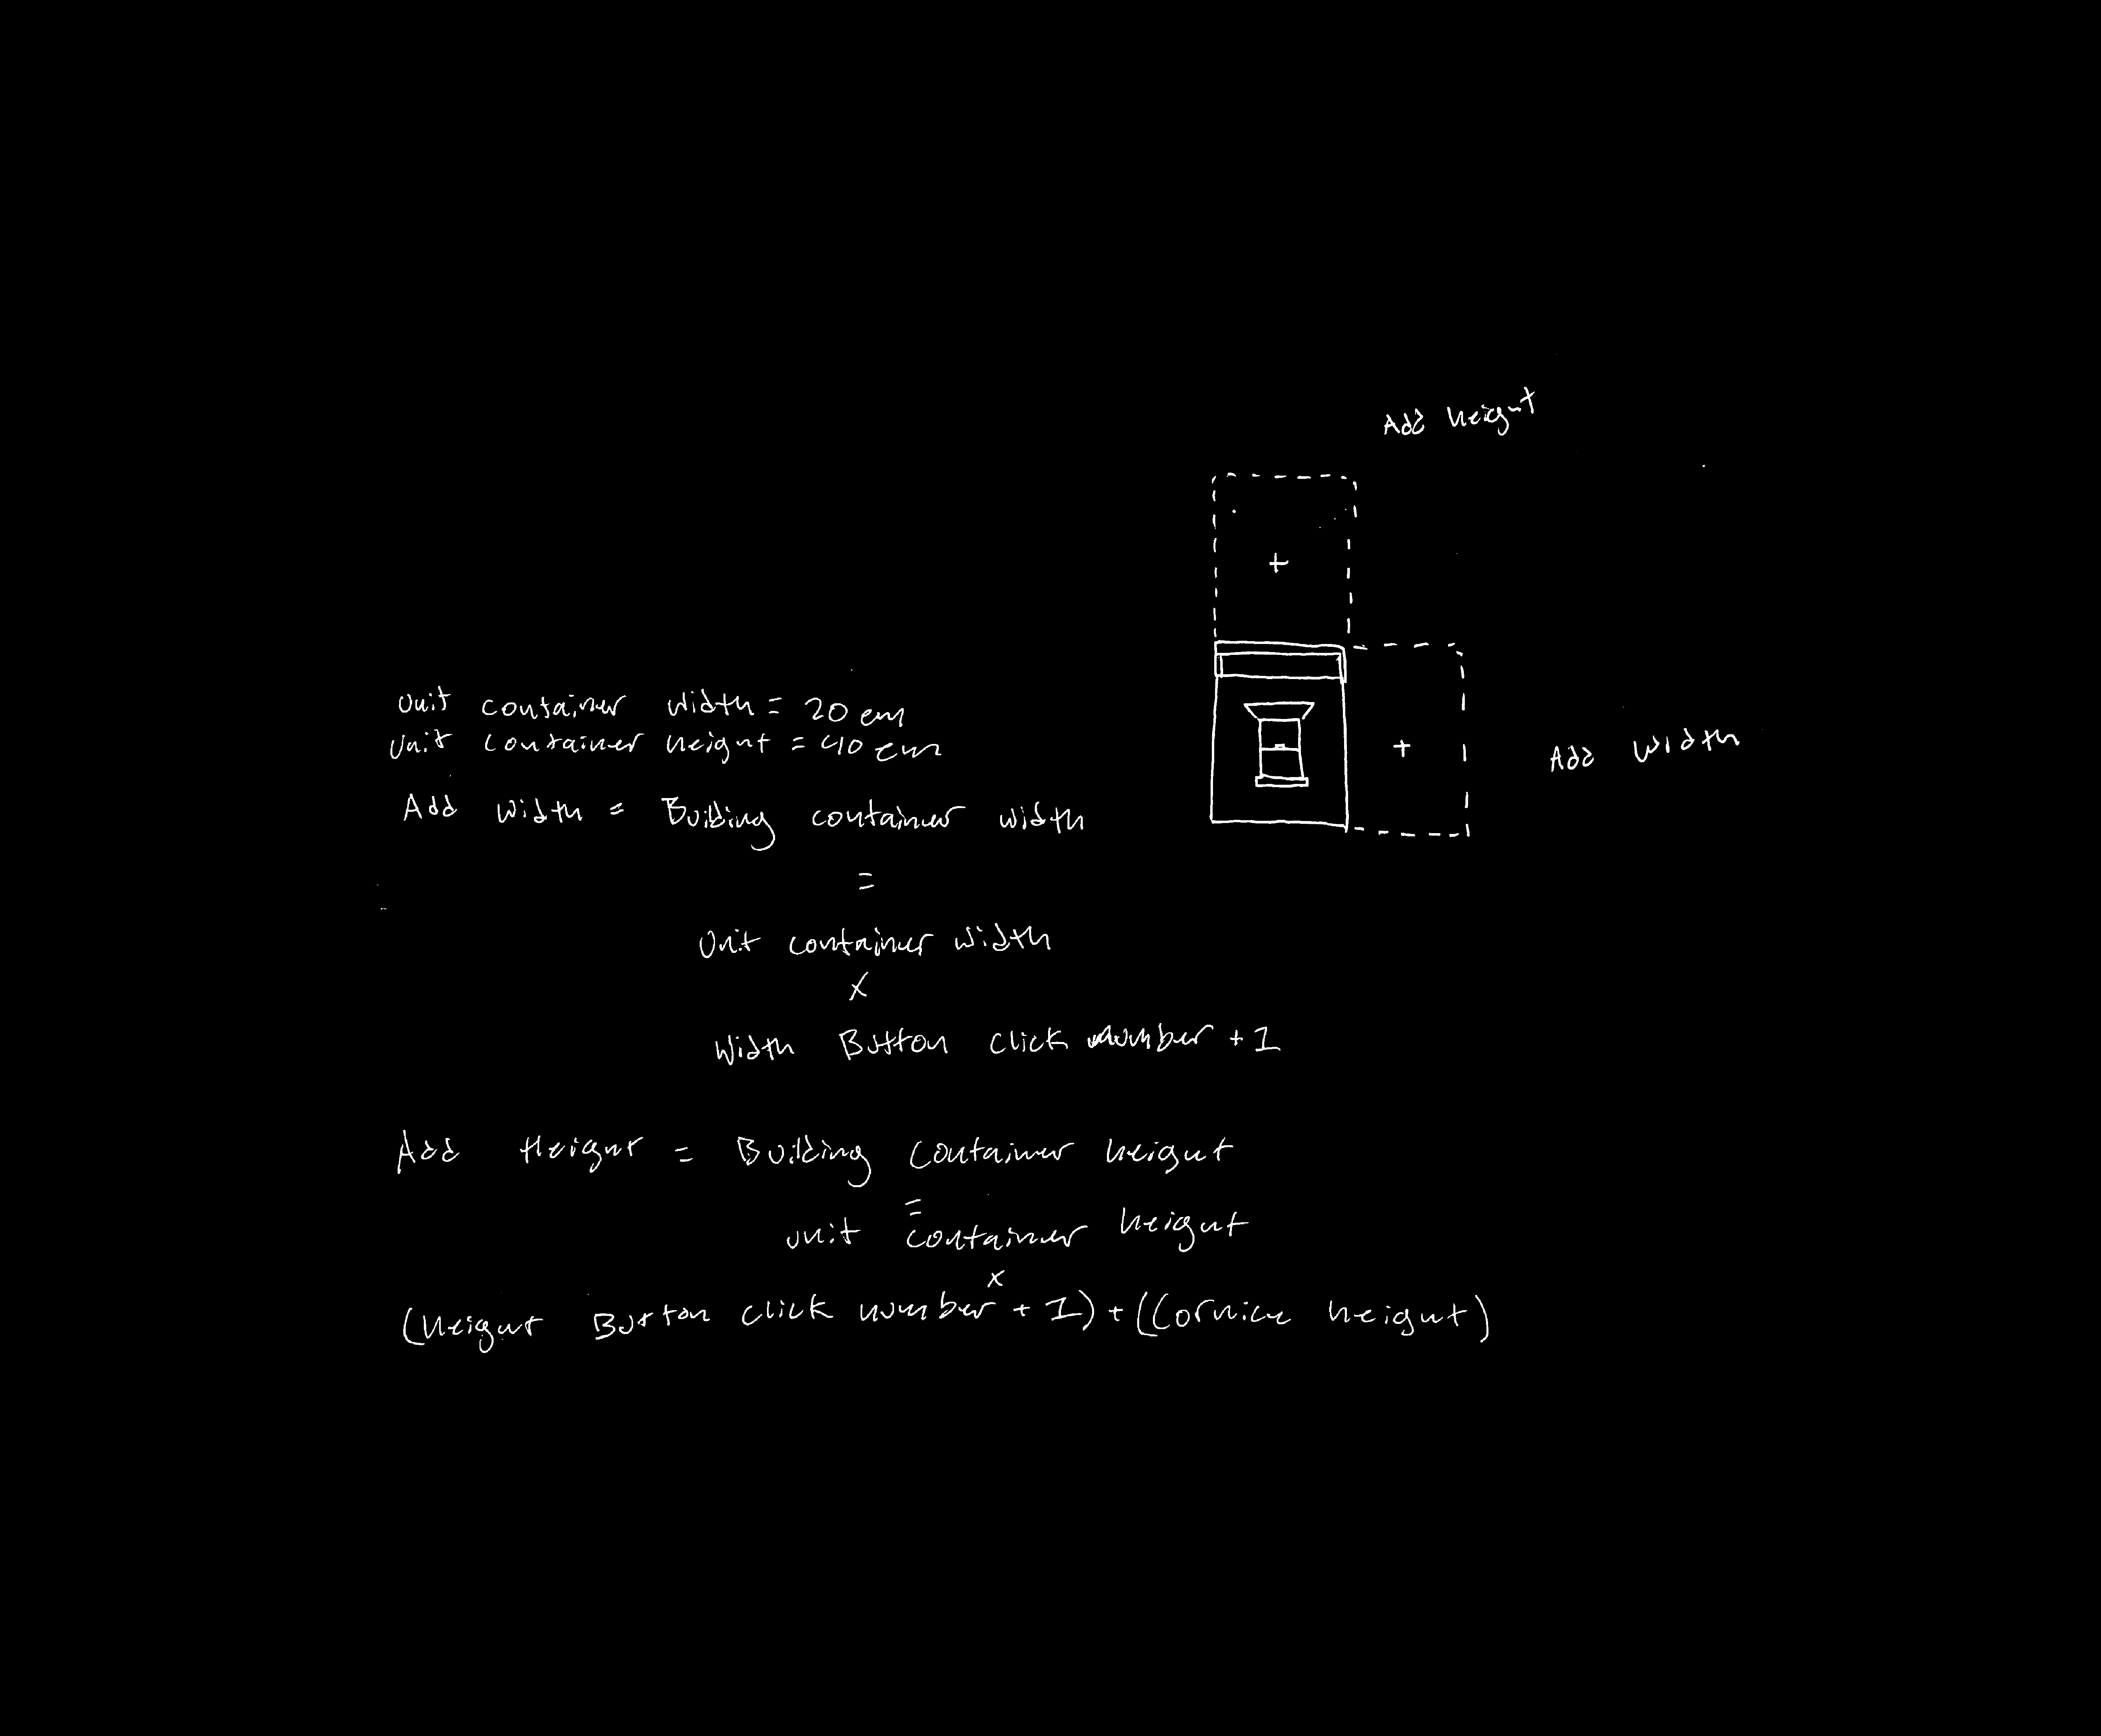 Add height
+
Unit container width = 20 em
Unit container height = 40 em
+
Add width
Add width = Building container width
=
Unit container width
x
Width Button click number + 1
Add Height = Building container height
=
unit container height
x
(height Button click number + 1) + (Cornice height)